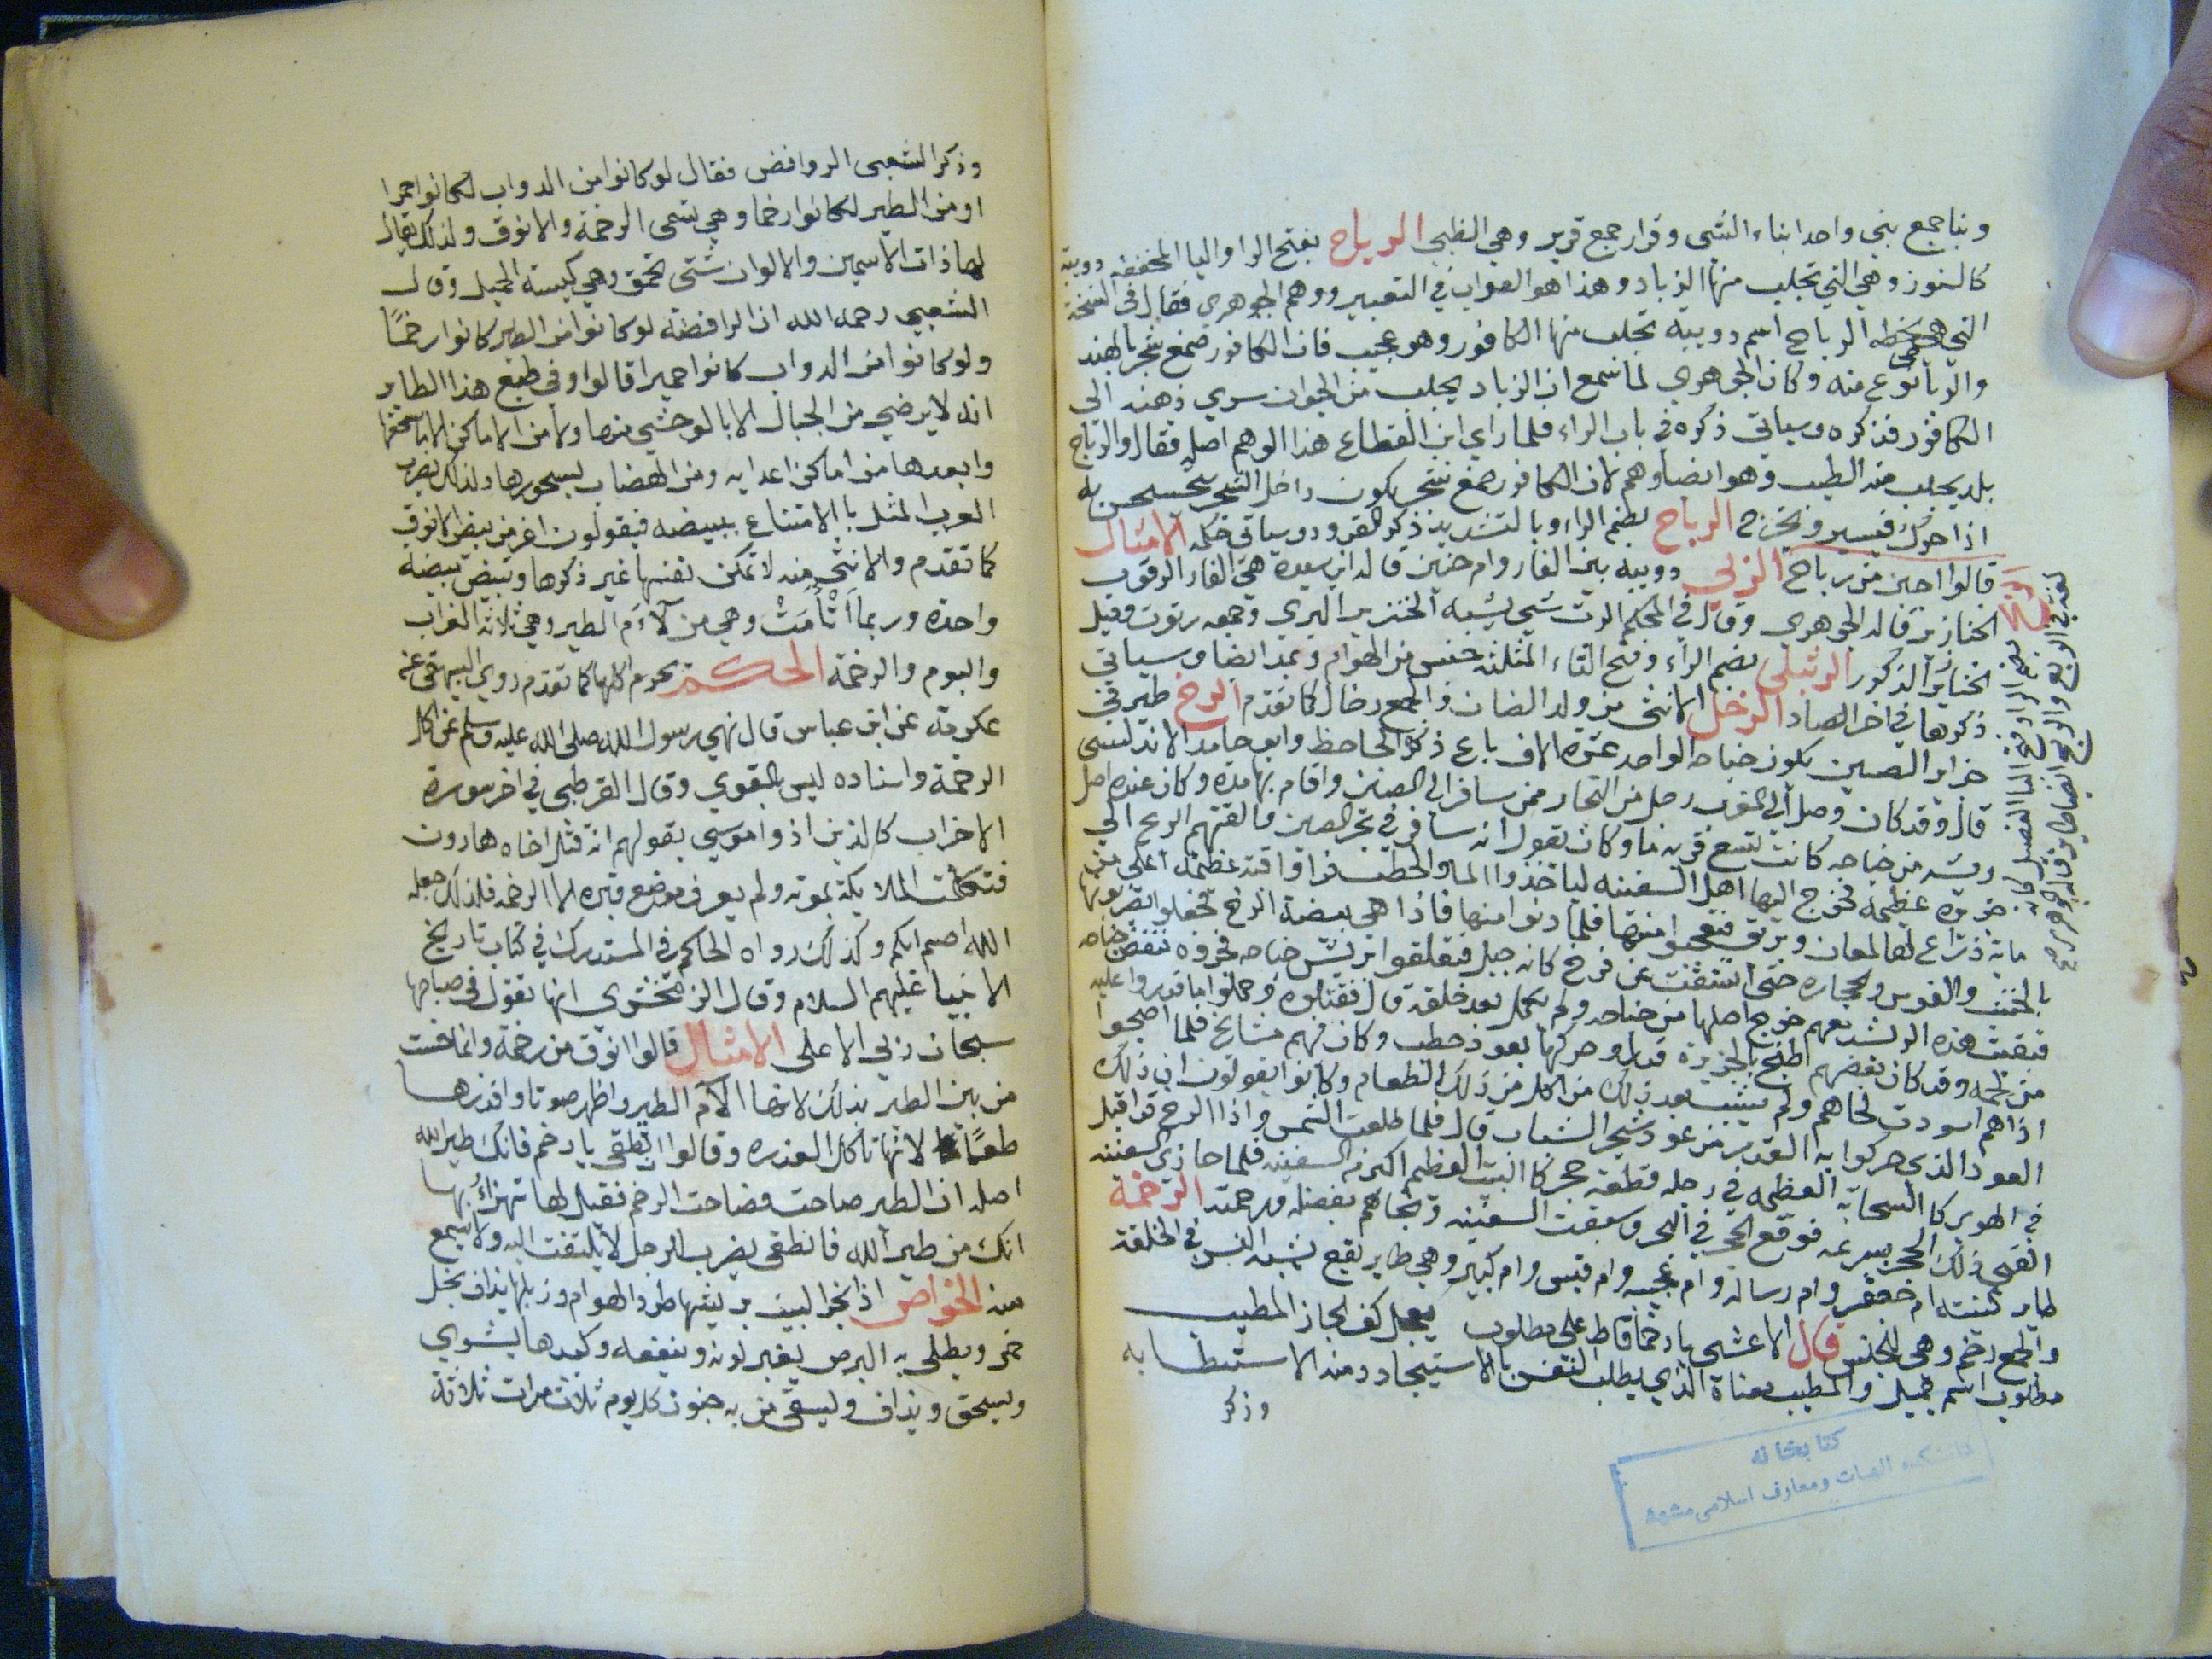 وبناجمع بني واحد ابناء الشي وقرار جمع قرير وهي الظبي الرباح بفتح الرا والبا المخففه دويبة
كالسنور وهي التي تجلب منها الزباد وهذا هو الصواب في التعبير ووهم الجوهري فقال في النسخة
التي هي بخطه الرباح اسم دويبة تجلب منها الكافور وهو عجيب فان الكافور صمغ شجر بالهند
والرباح نوع منه وكان الجوهري لما سمع ان الزباد يجلب من الحيوان سري ذهنه الى
الكافور فذكره وسياتي ذكره في باب الزاء فلما راي ابن القطاع هذا الوهم اصلح فقال والرباح
بلد يجلب منه الطيب وهو ايضا وهم لان الكافور صمغ شجر يكون داخل الشجر
اذا حرك فيسير ويخرج الرباح بضم الراء وبالتشديد ذكر القرود وسياتي حكمه الامثال
قالوا اجبن من رباح دويبه بين الفار وام حنين قاله ابن سيده هي الفار الرتوت
الخنازير قاله الجوهري وقال في المحكم الرت شي يشبه الخنزير البري وجمعه رتوت وقيل
الخنازير الذكور الرثيلى بضم الراء وفتح الثاء المثلثه جنس من الهوام ويمد ايضا وسياتي
ذكرها في اخر الصاد الرخل الانثى من ولد الضان والجمع رخال كما تقدم الرخ طير في
جزاير الصين يكون جناحه الواحد عشرة الاف باع ذكره الجاحظ وابو حامد الاندلسى
قال وقد كان وصل الى المغرب رجل من التجار ممن سافر الى الصين واقام بها مدة وكان عنده اصل
ريشه من جناحه كانت تسع قربه ما وكان يقول انه سافر في بحر الصين فالقتهم الريح الي
جزيره عظيمه فخرج اليها اهل السفينه لياخذوا الماء والحطب فراوا قبة عظيمه اعلى من
ماية ذراع لها لمعان وبريق فتعجبوا منها فلما دنوا منها فاذا هي بيضة الرخ فجعلوا يضربونها
بالخشب والفوس والحجاره حتى انشقت عن فرخ كانه جبل فتعلقوا بريش جناحه فجروه فنفض جناحه
فبقيت هذه الريشه معهم خرج اصلها من جناحه ولم يكمل بعد خلقه قال فقتلوه وحملوا ما قدروا عليه
من لحمه وقد كان بعضهم اطبخ بالجزيرة قدرا وحركها بعود حطب وكان فيهم مشائخ فلما اصبحوا
اذا هم اسودت لحاهم ولم يشب بعد ذلك من اكل من ذلك الطعام وكانوا يقولون ان ذلك
العود الذي حركوا به القدر من عود شجر الشباب قال فلما طلعت الشمس واذا الرخ قد اقبل
في الهوير كالسحابه العظيمه في رجله قطعة حجر كالبيت العظيم اكبر من السفينه فلما حاذي السفينه
القى ذلك الحجر بسرعه فوقع الحجر في البحر وسبقت السفينه ونجاهم بفضله ورحمته الرخمة
طاير كنيته ام جعفر وام رساله وام عجيبه وام قيس وام كبير وهي طاير بقيع يشبه النسر في الخلقة
والجمع رخم وهي للجنس قال الاعشي يا رخما قاظ على مطلوب يعجل كف الخاز المطيب
مطلوب اسم جميل والمطيب معناة الذي يطلب النفس بالاستيجاد ومنه الاستطابه
وذكر
وذكر الشعبى الروافض فقال لو كانوا من الدواب لكانوا حمرا
او من الطير لكانوا رخما وهي تسمى الرخمة والانوق ولذلك يقال
لها ذات الاسمين والالوان شتى تحمق وهي كيسة الحيل وقال
الشعبي رحمه الله ان الرافضة لو كانوا من الطير كانوا رخمًا
ولو كانوا من الدواب كانوا حميرا قالوا وفي طبع هذا الطاير
انه لا يرضي من الجبال الا بالوحشي منها ولا من الاماكن الا باسحقها
وابعدها من اماكن اعدايه ومن الهضاب بصخورها ولذلك يضرب
العرب المثل بالامتناع ببيضه فيقولون اعز من بيض الانوق
كما تقدم والانثى منه لا تمكن نفسها غير ذكرها وتبيض بيضة
واحدة وربما اَتْأَمَتْ وهي من اَلآم الطير وهي ثلاثة الغراب
والبوم والرخمة الحكم تحرم اكلها كما تقدم روي البيهقي عن
عكرمة عن ابن عباس قال نهي رسول الله صلى الله عليه وسلم عن اكل
الرخمة واسناده ليس بالقوي وقال القرطبي في اخر سورة
الاحزاب كالذين اذوا موسي بقولهم انه قتل اخاه هارون
فتكلمت الملايكة بموته ولم يعرف موضع قبره الا الرخمه فلذلك جعله
الله اصم ابكم وكذلك رواه الحاكم في المستدرك في كتاب تاريخ
الانبيا عليهم السلام وقال الزمخشري انها تقول في صياحها
سبحان ربي الاعلى الامثال قالوا انوق من رخمة وانما خصت
من بين الطير بذلك لانها الآم الطير واظهر صوتا واقذرها
طعمًا لانها تاكل العذره وقالوا انطقي يا رخم فانك طير الله
اصله ان الطير صاحت فصاحت الرخم فقيل لها تهزاءُ بها
انك من طير الله فانطقي يضرب للرجل لا يلتفت اليه ولا يسمع
منه الخواص اذا بخر البيت بريشها طرد الهوام وزبلها يذاف بخل
خمر ويطلى به البرص يغير لونه وينفعه وكبدها يشوي
ويسحق ويذاف ويسقى من به جنون كل يوم ثلاث مرات ثلاثة
كتابخانه
الهيات ومعارف اسلامى مشهد